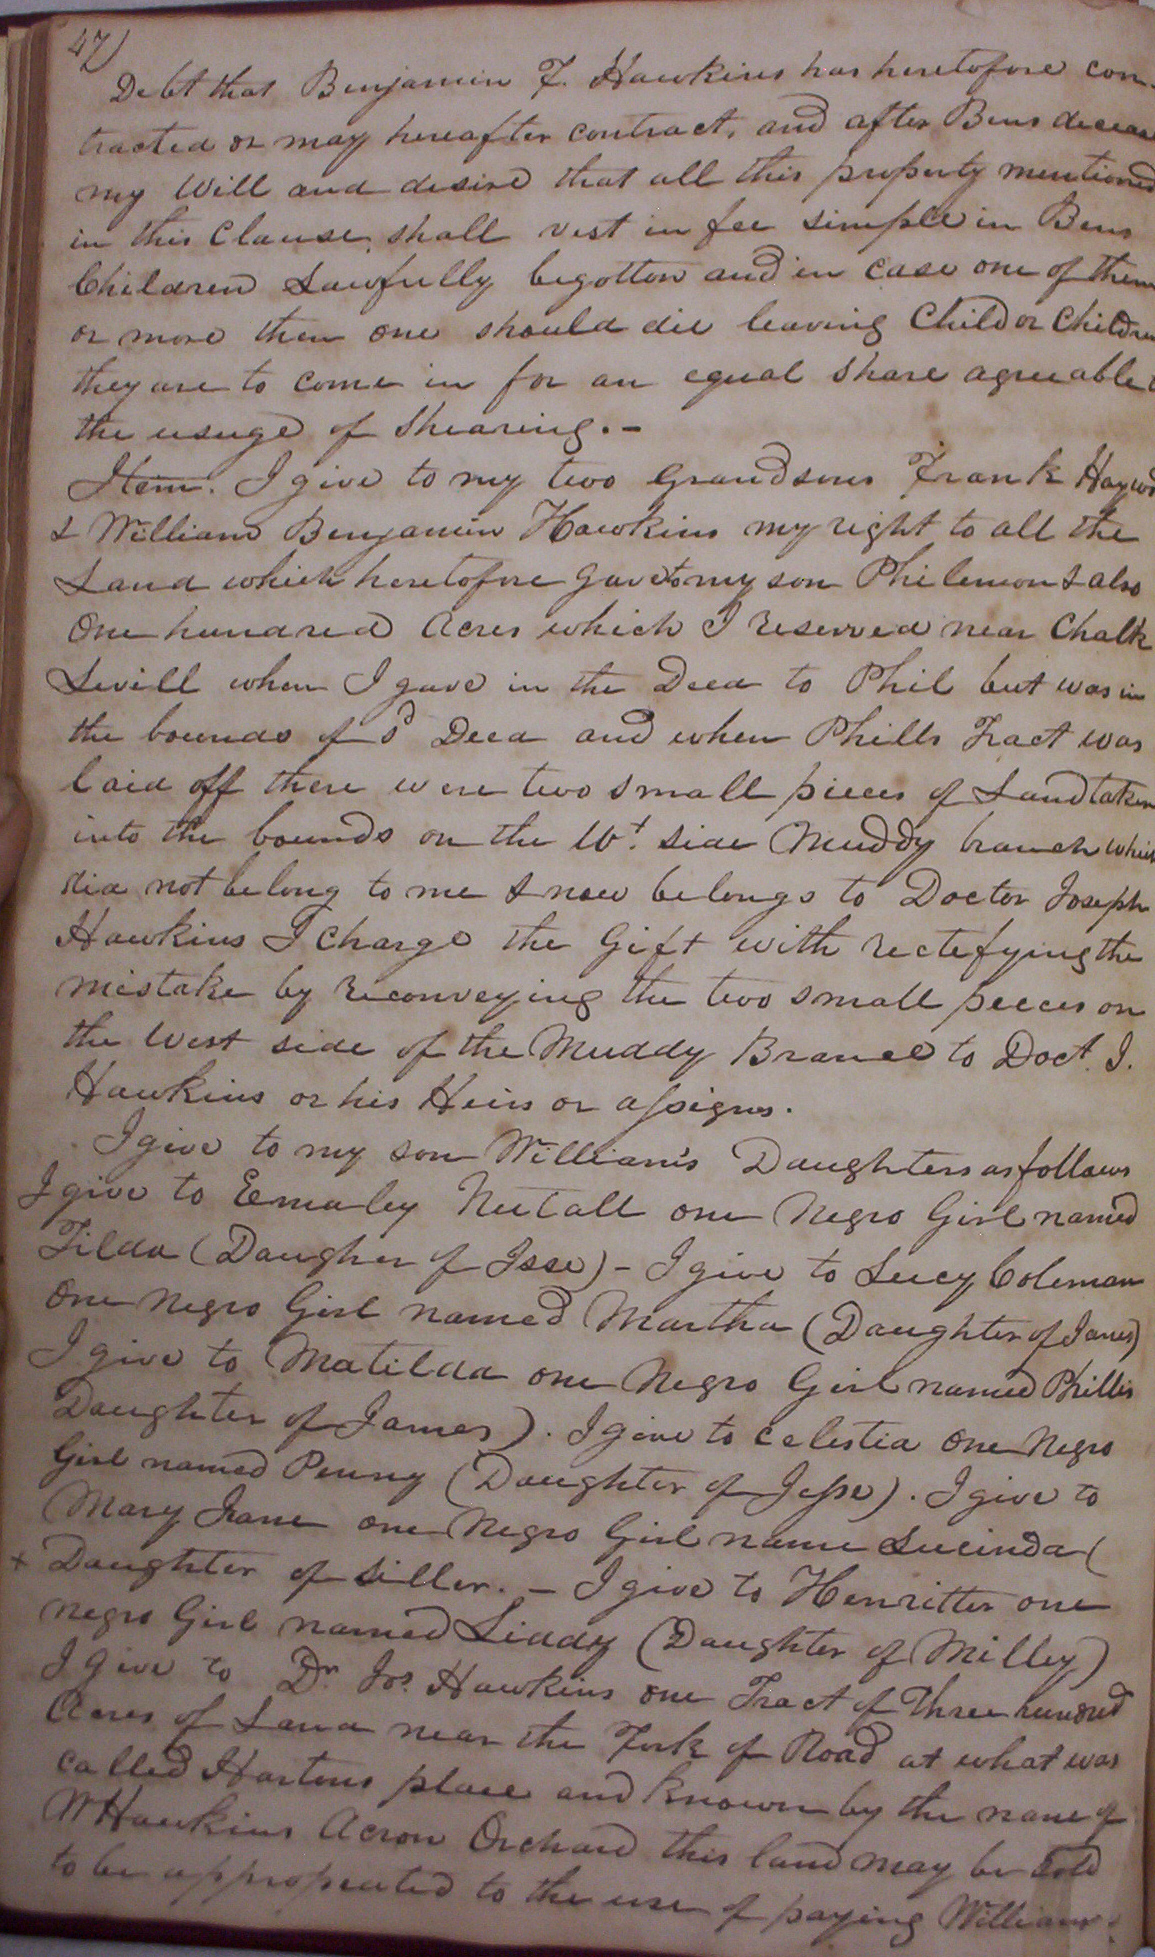 47)
Debt that Benjamin F. Hawkins has heretofore con-
tracted or may hereafter contract, and after Bens decease
my Will and desire that all this property mentioned
in this Clause shall vest in fee simple in Bens
Children Lawfully begotton and in case one of them
or more then one should die leaving Child or Children
they are to come in for an equal share agreeable
the usuge of Shearing. -
Item. I give to my two Grandsons Frank Haywd
& William Benjamin Hawkins my right to all the
Land which heretofore gave to my son Philemon & also
One hundred Acres which I reserved near Chalk
Levill when I gave in the Deed to Phil but was in
the bounds of sd Deed and when Phills Tract was
laid off there were two small pieces of Land taken
into the bounds on the Wt. side Muddy branch which
did not belong to me & now belongs to Doctor Joseph
Hawkins I Charge the Gift with rectefying the
mistake by reconveying the two small peeces on
the West side of the Muddy Brance to Doct. J.
Hawkins or his Heirs or assigns.
I give to my son William's Daughters as follows
I give to Eemaley Nutall one Negro Girl named
Tilda (Daugher of Isse) - I give to Lucy Coleman
One Negro Girl named Martha (Daughter of James)
I give to Matilda one Negro Girl named Phillis
Daughter of James). I give to Celestia One Negro
Girl named Penny (Daughter of Jesse). I give to
Mary Jane one Negro Girl name Lucinda (
+ Daughter of Siller. - I give to Henritter one
negro Girl named Liddy (Daughter of Milley)
I Give to Dr. Jos. Hawkins one Tract of Three hundred
Acres of Land near the Fork of Road at what was
called Hartons place and known by the name of
W Hawkins Acron Orchard this land may be Sold
to be appropeated to the use of paying Williams